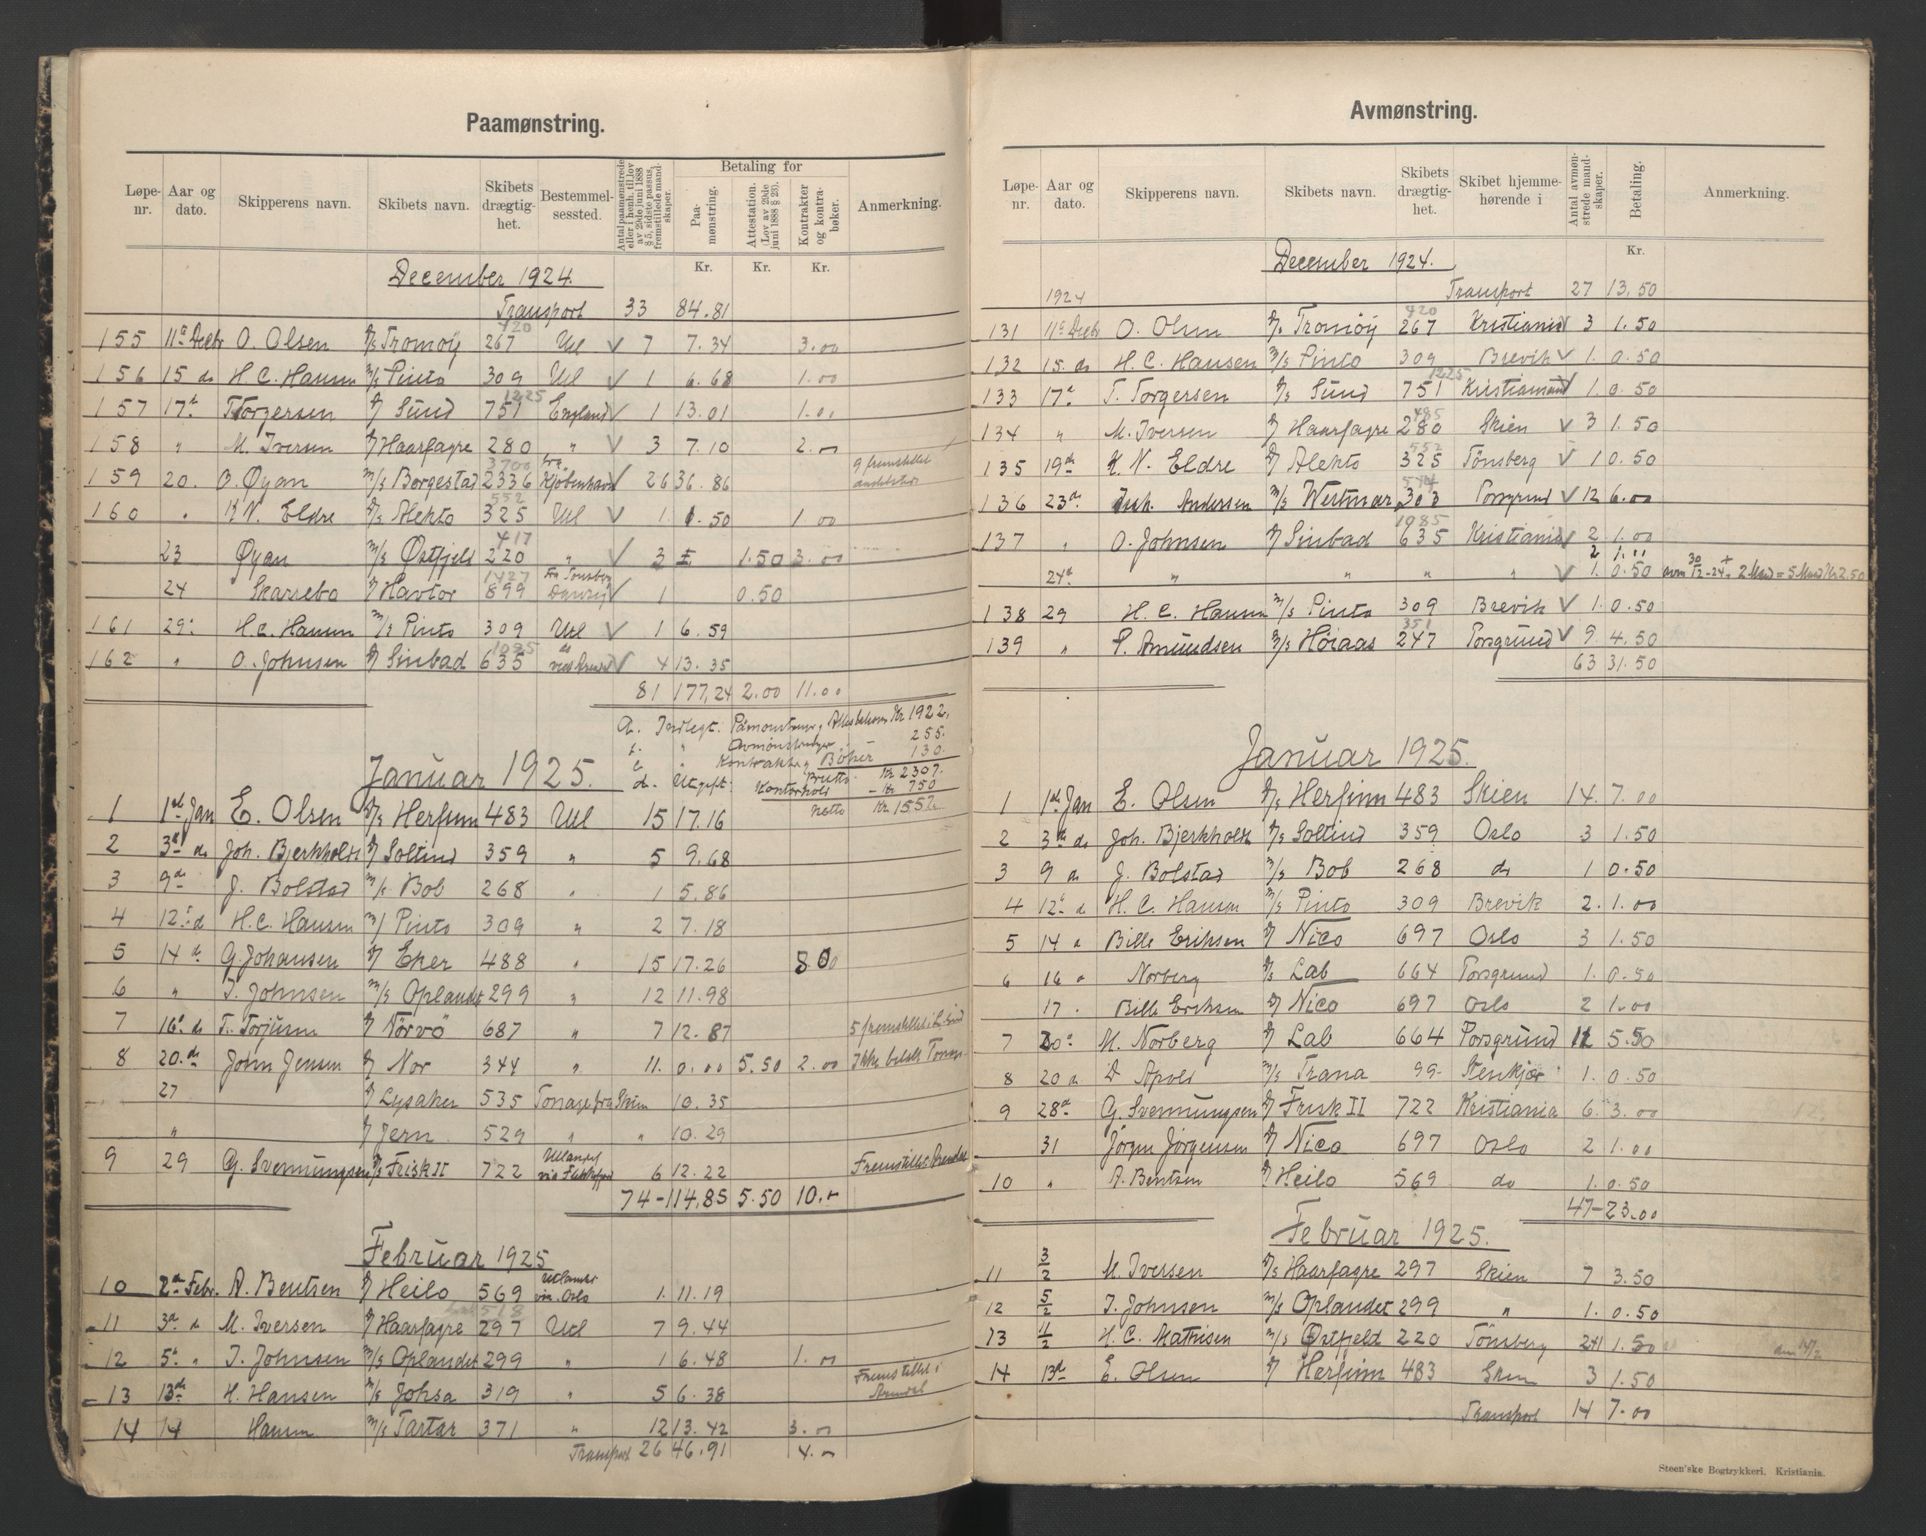 Paamønstring.
Løpe-nr. Aar og dato. Skipperens navn. Skibets navn. Skibets drægtig-het. Bestemmel-sessted. Antal paamønstrede eller i henh. til lov av 20de juni 1888 § 5, sidste passus, fremstillede mand-skaper. Betaling for Paa-mønstring. Attestation. (Lov av 20de juni 1888 § 23). Kontrakter og kontra-bøker. Anmerkning.
Kr. Kr. Kr.
December 1924.
Transport 33 84.81
420
155 11te Decbr O. Olsen D/s Tromøy 267 Utl V 7 7.34 3.00
156 15 do H. C. Hansen M/s Pinto 309 Utl V 1 6.68 1.00
1225
157 17de T. Torgersen D/ Sund 751 England V 1 13.01 1.00
158 " M. Iversen D/ Haarfagre 280 " V 3 7.10 2.00
3700 fra
159 20. O. Øyan M/s Borgestad 2336 Kjøbenhavn V 26 36.86 9 fremstillet
552
160 " K N. Eldre D/s Alekto 325 Utl V 1. 1.50 1.00
417
23 Øyan M/s Østfjeld 220 " V 3 1.50 3.00
1427 Fra Tønsberg
24 Skarsebo D/ Havtor 899 Danzig V 1 0.50
161 29. H. C. Hansen M/s Pinto 309 Utl V 1 6.59
1085 do
162 " O. Johnsen D/ Sinbad 635 via Arendal V 4 13.35
81 177,24 2.00 11.00
a. Indtegt: Påmønstringer, Attestationer Kr 1922.
b. " Avmønstringer " – 255.
c. " Kontrakter, Bøker 130.
Brutto Kr 2307.
d. Utgift: Kontorhold – Kr 750
Netto Kr 1557.
Januar 1925.
1 1ste Jan E. Olsen D/s Herfinn 483 Utl 15 17.16
2 3de do Joh. Bjerkholdt D/ Soltind 359 " 5 9.68
3 9de J. Bolstad M/s Bob 268 " 1 5.86
4 12. d H. C. Hansen M/ Pinto 309 " 2 7.18
5 14 do G. Johansen D/ Eker 488 " 15 17.26 5.00
6 " J. Johnsen M/s Oplandet 299 " 12 11.98
7 16. do T. Torjusen D/ Nörvö 687 " 7 12.87
8 20. do John Jensen D/ Nor 344 " 11. 0.00 5.50 2.00 Ikke betalt Tonage
27 D/ Lysaker 535 Tonage fra Skien 10.35
" D/ Jern 529 " " 10.29
9 29 G. Svennungsen D/s Frisk II 722 Utlandet via Flekkefjord 6 12.22 Fremstillet Arendal
74 – 114.85 5.50 10.–
Februar 1925
10 2de Febr. A. Bentsen D/ Heilo 569 Utlandet via Oslo 1. 11.19
518
11 3de d M. Iversen D/ Haarfagre 297 Utl 7 9.44
12 5. " J. Johnsen M/s Oplandet 299 " 1 6.48 1.00
13 13de H. Hansen M/s Johsa 319 " 5 6.38 Fremstillet i Arendal
14 14 Hansen M/s Tartar 371 " 12 13.42 3.00
Transport 26 46.91 4.–
Avmønstring.
Løpe-nr. Aar og dato. Skipperens navn. Skibets navn. Skibets drægtig-het. Skibet hjemme-hørende i Antal avmøn-strede mand-skaper. Betaling. Anmerkning.
Kr.
December 1924.
1924 Transport 27 13.50
420
131 11te Decbr O. Olsen D/s Tromöy 267 Kristiania V 3 1.50
132 15. do H. C. Hansen M/s Pinto 309 Brevik V 1. 0.50
1225
133 17de T. Torgersen D/s Sund 751 Kristiansund V 1. 0.50
485
134 " M. Iversen D/ Haarfagre 280 Skien V 3 1.50
552
135 19de K. N. Eldre D/ Alekto 325 Tönsberg V 1 0.50
544
136 23de Andersen M/s Westmar 303 Porsgrund V 12 6.00
1085
137 " O. Johnsen D/ Sinbad 635 Kristiania V 2 1.00
2 1.00
24de " " " " V 1. 0.50 avm 30/12 – 24 + 2 Mand = 5 Mand Kr 2.50
138 29 H. C. Hansen M/s Pinto 309 Brevik V 1. 0.50
351
139 " S. Amundsen M/s Höiaas 247 Porsgrund V 9. 4.50
63 31.50
Januar 1925.
1 1ste Jan E. Olsen D/s Herfinn 483 Skien 14. 7.00
2 3de do Joh. Bjerkholdt D/s Soltind 359 Oslo 3 1.50
3 9 do J. Bolstad M/s Bob 268 do 1 0.50
4 12. d H. C. Hansen M/s Pinto 309 Brevik 2. 1.00
5 14 d Bille Eriksen D/ Nico 697 Oslo 3 1.50
6 16 " Norberg D/s Lab 664 Porsgrund 1. 0.50
17 . Bille Eriksen D/ Nico 697 Oslo 2 1.00
7 20. M. Norberg D/ Lab 664 Porsgrund 11 5.50
8 20 d D Apold M/s Trana 99 – Stenkjær 1. 0.50
9 28de G. Svennungsen D/ Frisk II 722 Kristiania 6. 3.00
31 Jörgen Jörgensen D/ Nico 697 Oslo 2 1.00
10 " A. Bentsen D/ Heilo 569 do 1. 0.50
47 – 23.00
Februar 1925.
11 3/2 M. Iversen D/s Haarfagre 297 Skien 7 3.50
12 5/2 J. Johnsen M/s Oplandet 299 " 1. 0.50
13 11/2 H. C. Mathisen M/s Østfjeld 220 Tönsberg 2+1 1.50 avm 14/2
14 13de E. Olsen D/ Herfinn 483 Skien 3 1.50
Transport 14 7.00
Steen'ske Bogtrykkeri. Kristiania.